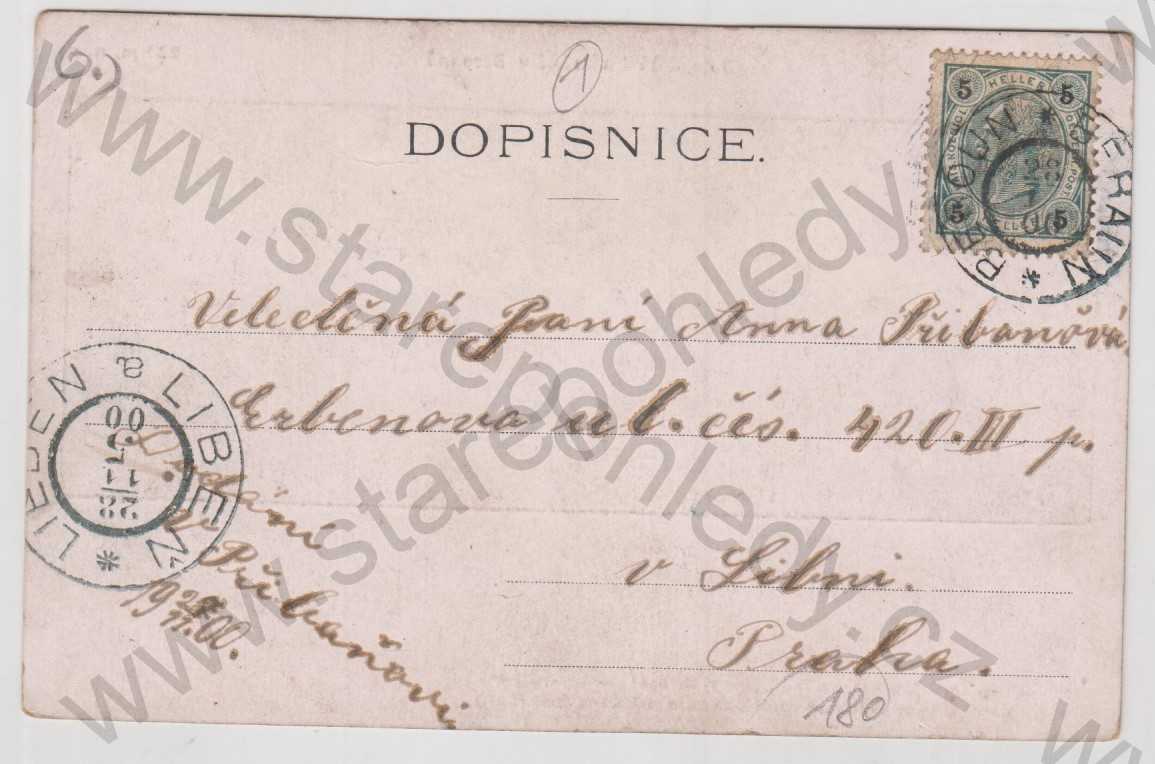 6.)
1
DOPISNICE.
5 HELLER 5
5 5
BEROUN * BERAUN *
28
Veleděná Paní Anna Přibanová
Erbenova ul. čís. 420. III p.
v Libni.
Praha.
LIEBEN a LIBEŇ *
28/11
00
v
Přibaňovi
1900.
180
www.starepohledy.cz
www.starepohledy.cz